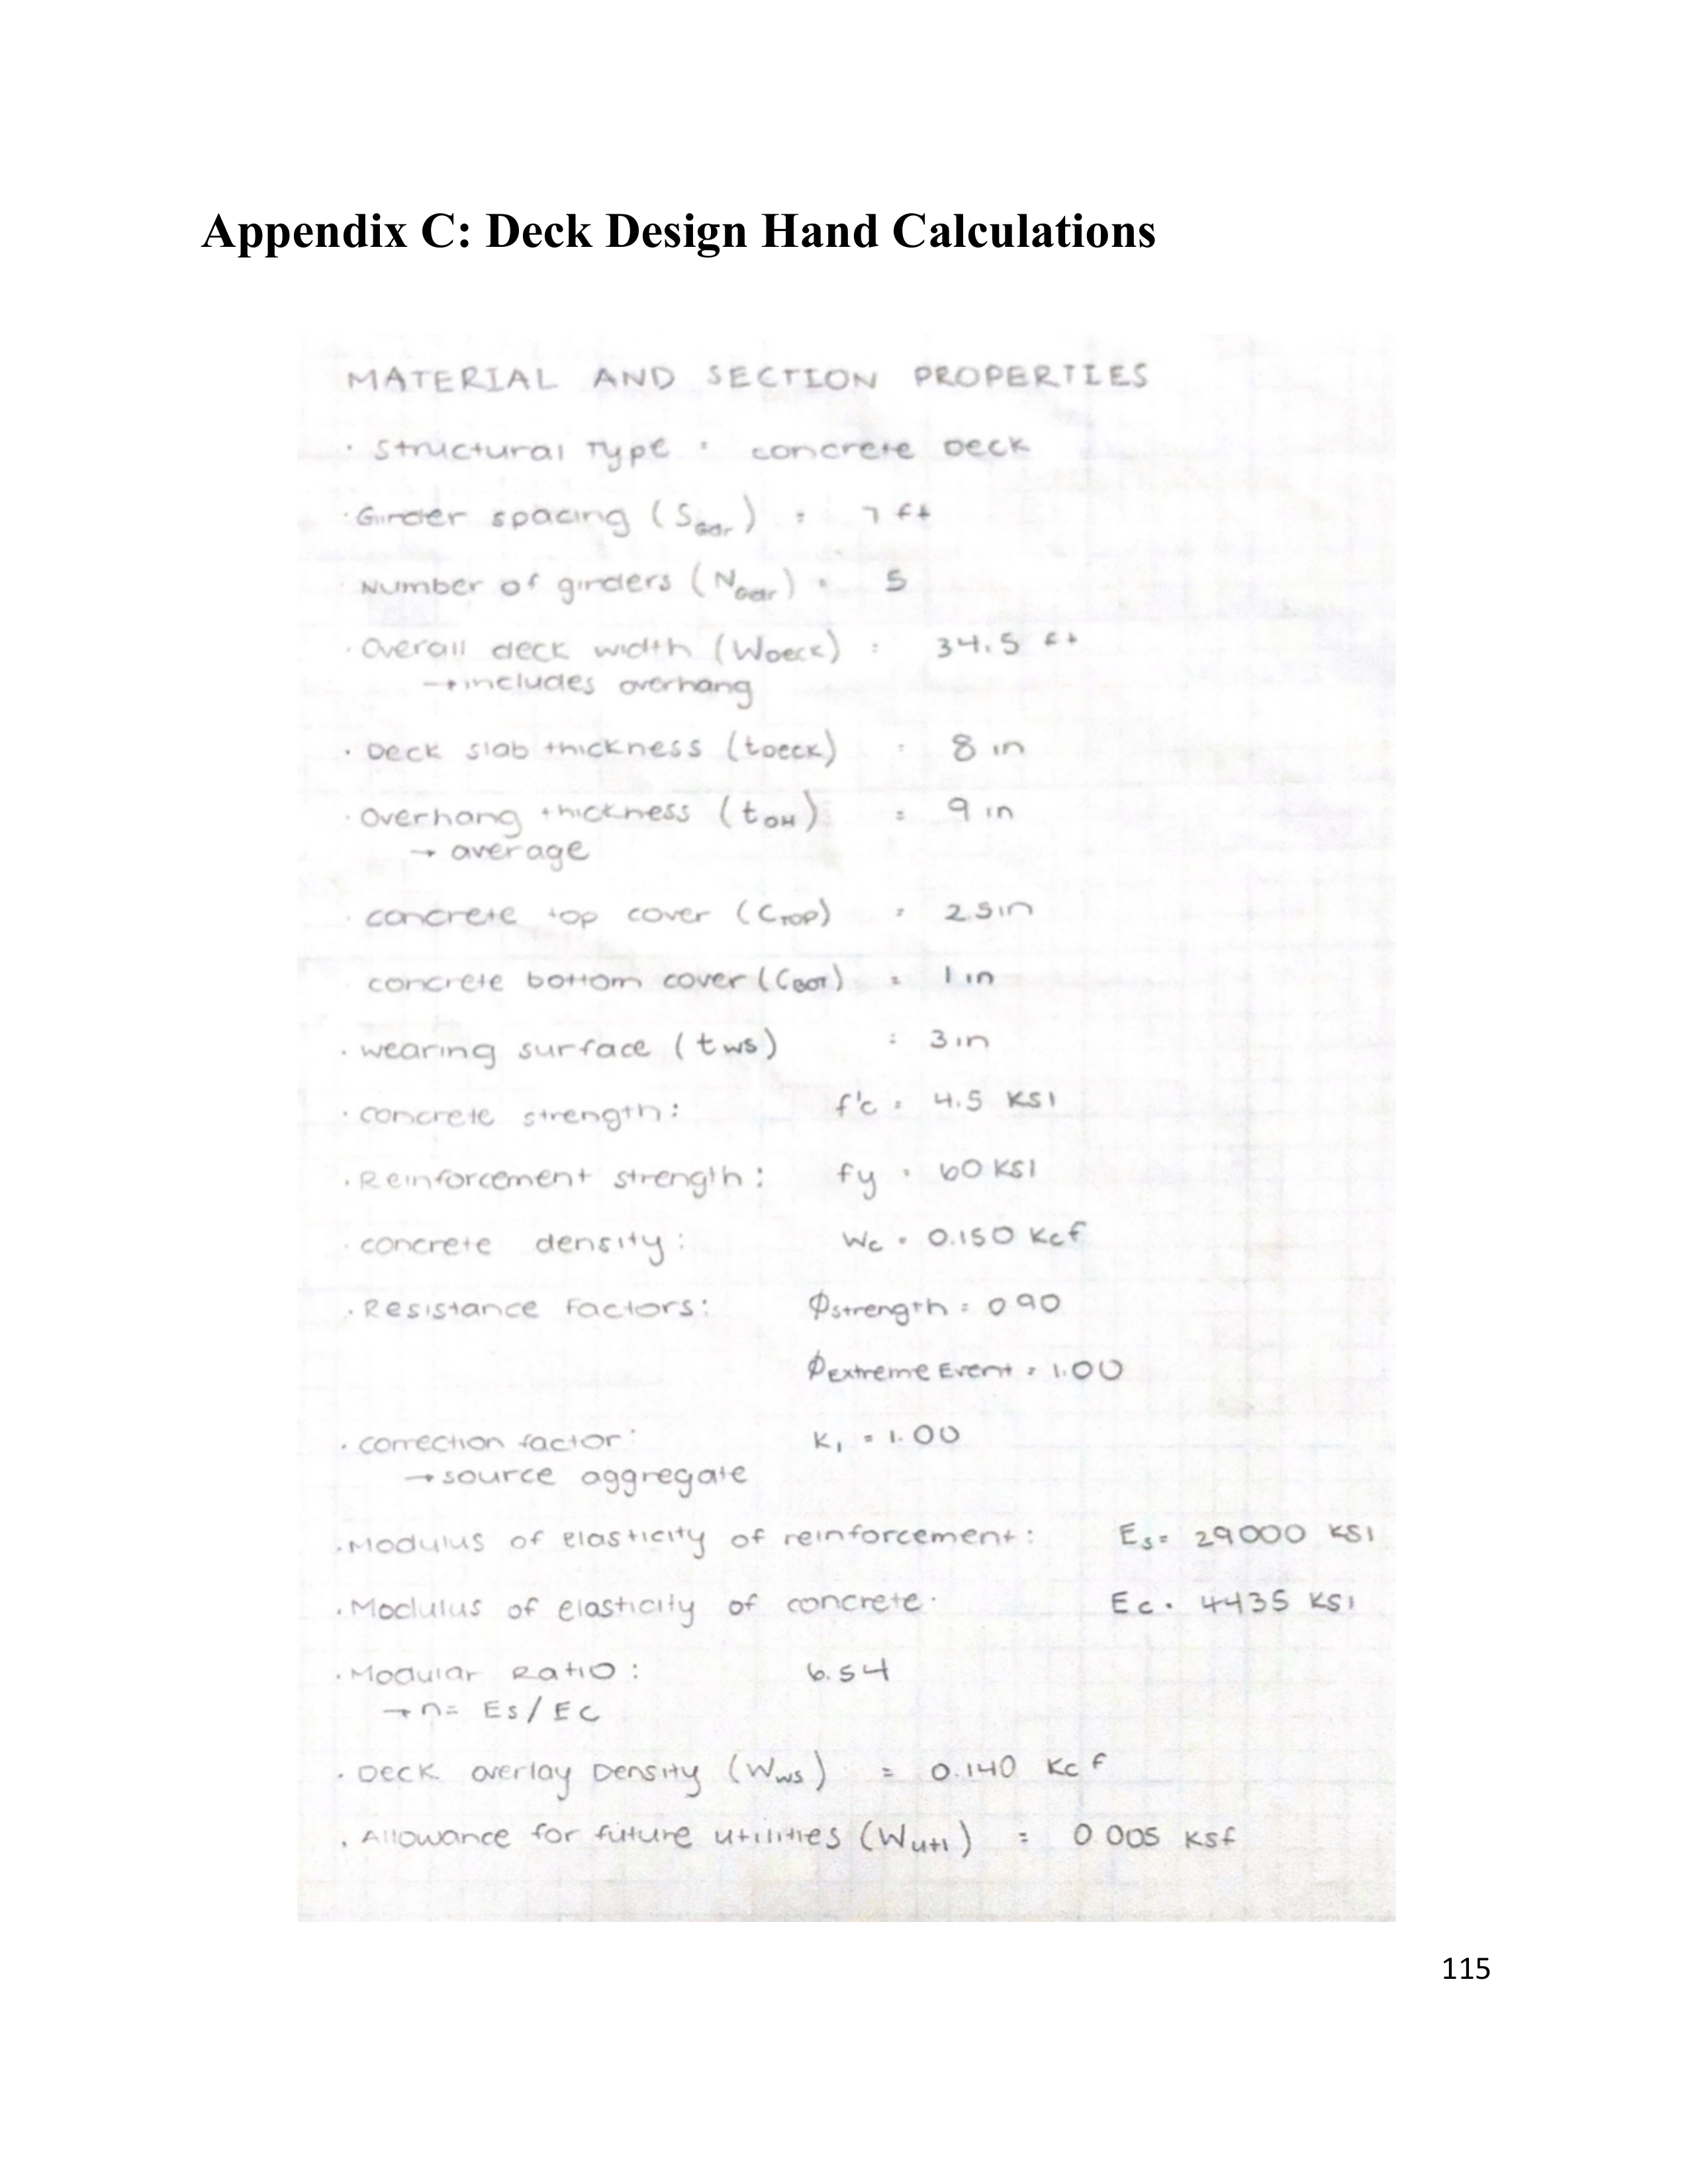 Appendix C: Deck Design Hand Calculations
MATERIAL AND SECTION PROPERTIES
· Structural Type : concrete Deck
· Girder spacing (SGdr) = 7 ft
Number of girders (NGdr) = 5
· Overall deck width (WDECK) = 34.5 ft
→ includes overhang
· Deck slab thickness (tDECK) = 8 in
· Overhang thickness (tOH) = 9 in
→ average
· concrete top cover (CTOP) = 2.5in
concrete bottom cover (CBOT) = 1 in
· wearing surface (tWS) = 3 in
· concrete strength: f'c = 4.5 KSI
· Reinforcement strength: fy = 60 KSI
· concrete density: Wc = 0.150 Kcf
· Resistance Factors: Østrength = 0.90
ØExtreme Event = 1.00
· correction factor: K1 = 1.00
→ source aggregate
· Modulus of elasticity of reinforcement: Es = 29000 KSI
· Modulus of elasticity of concrete: Ec = 4435 KSI
· Modular Ratio: 6.54
→ n= Es/EC
· Deck overlay Density (Wws) = 0.140 Kcf
· Allowance for future utilities (Wuti) = 0.005 Ksf
115